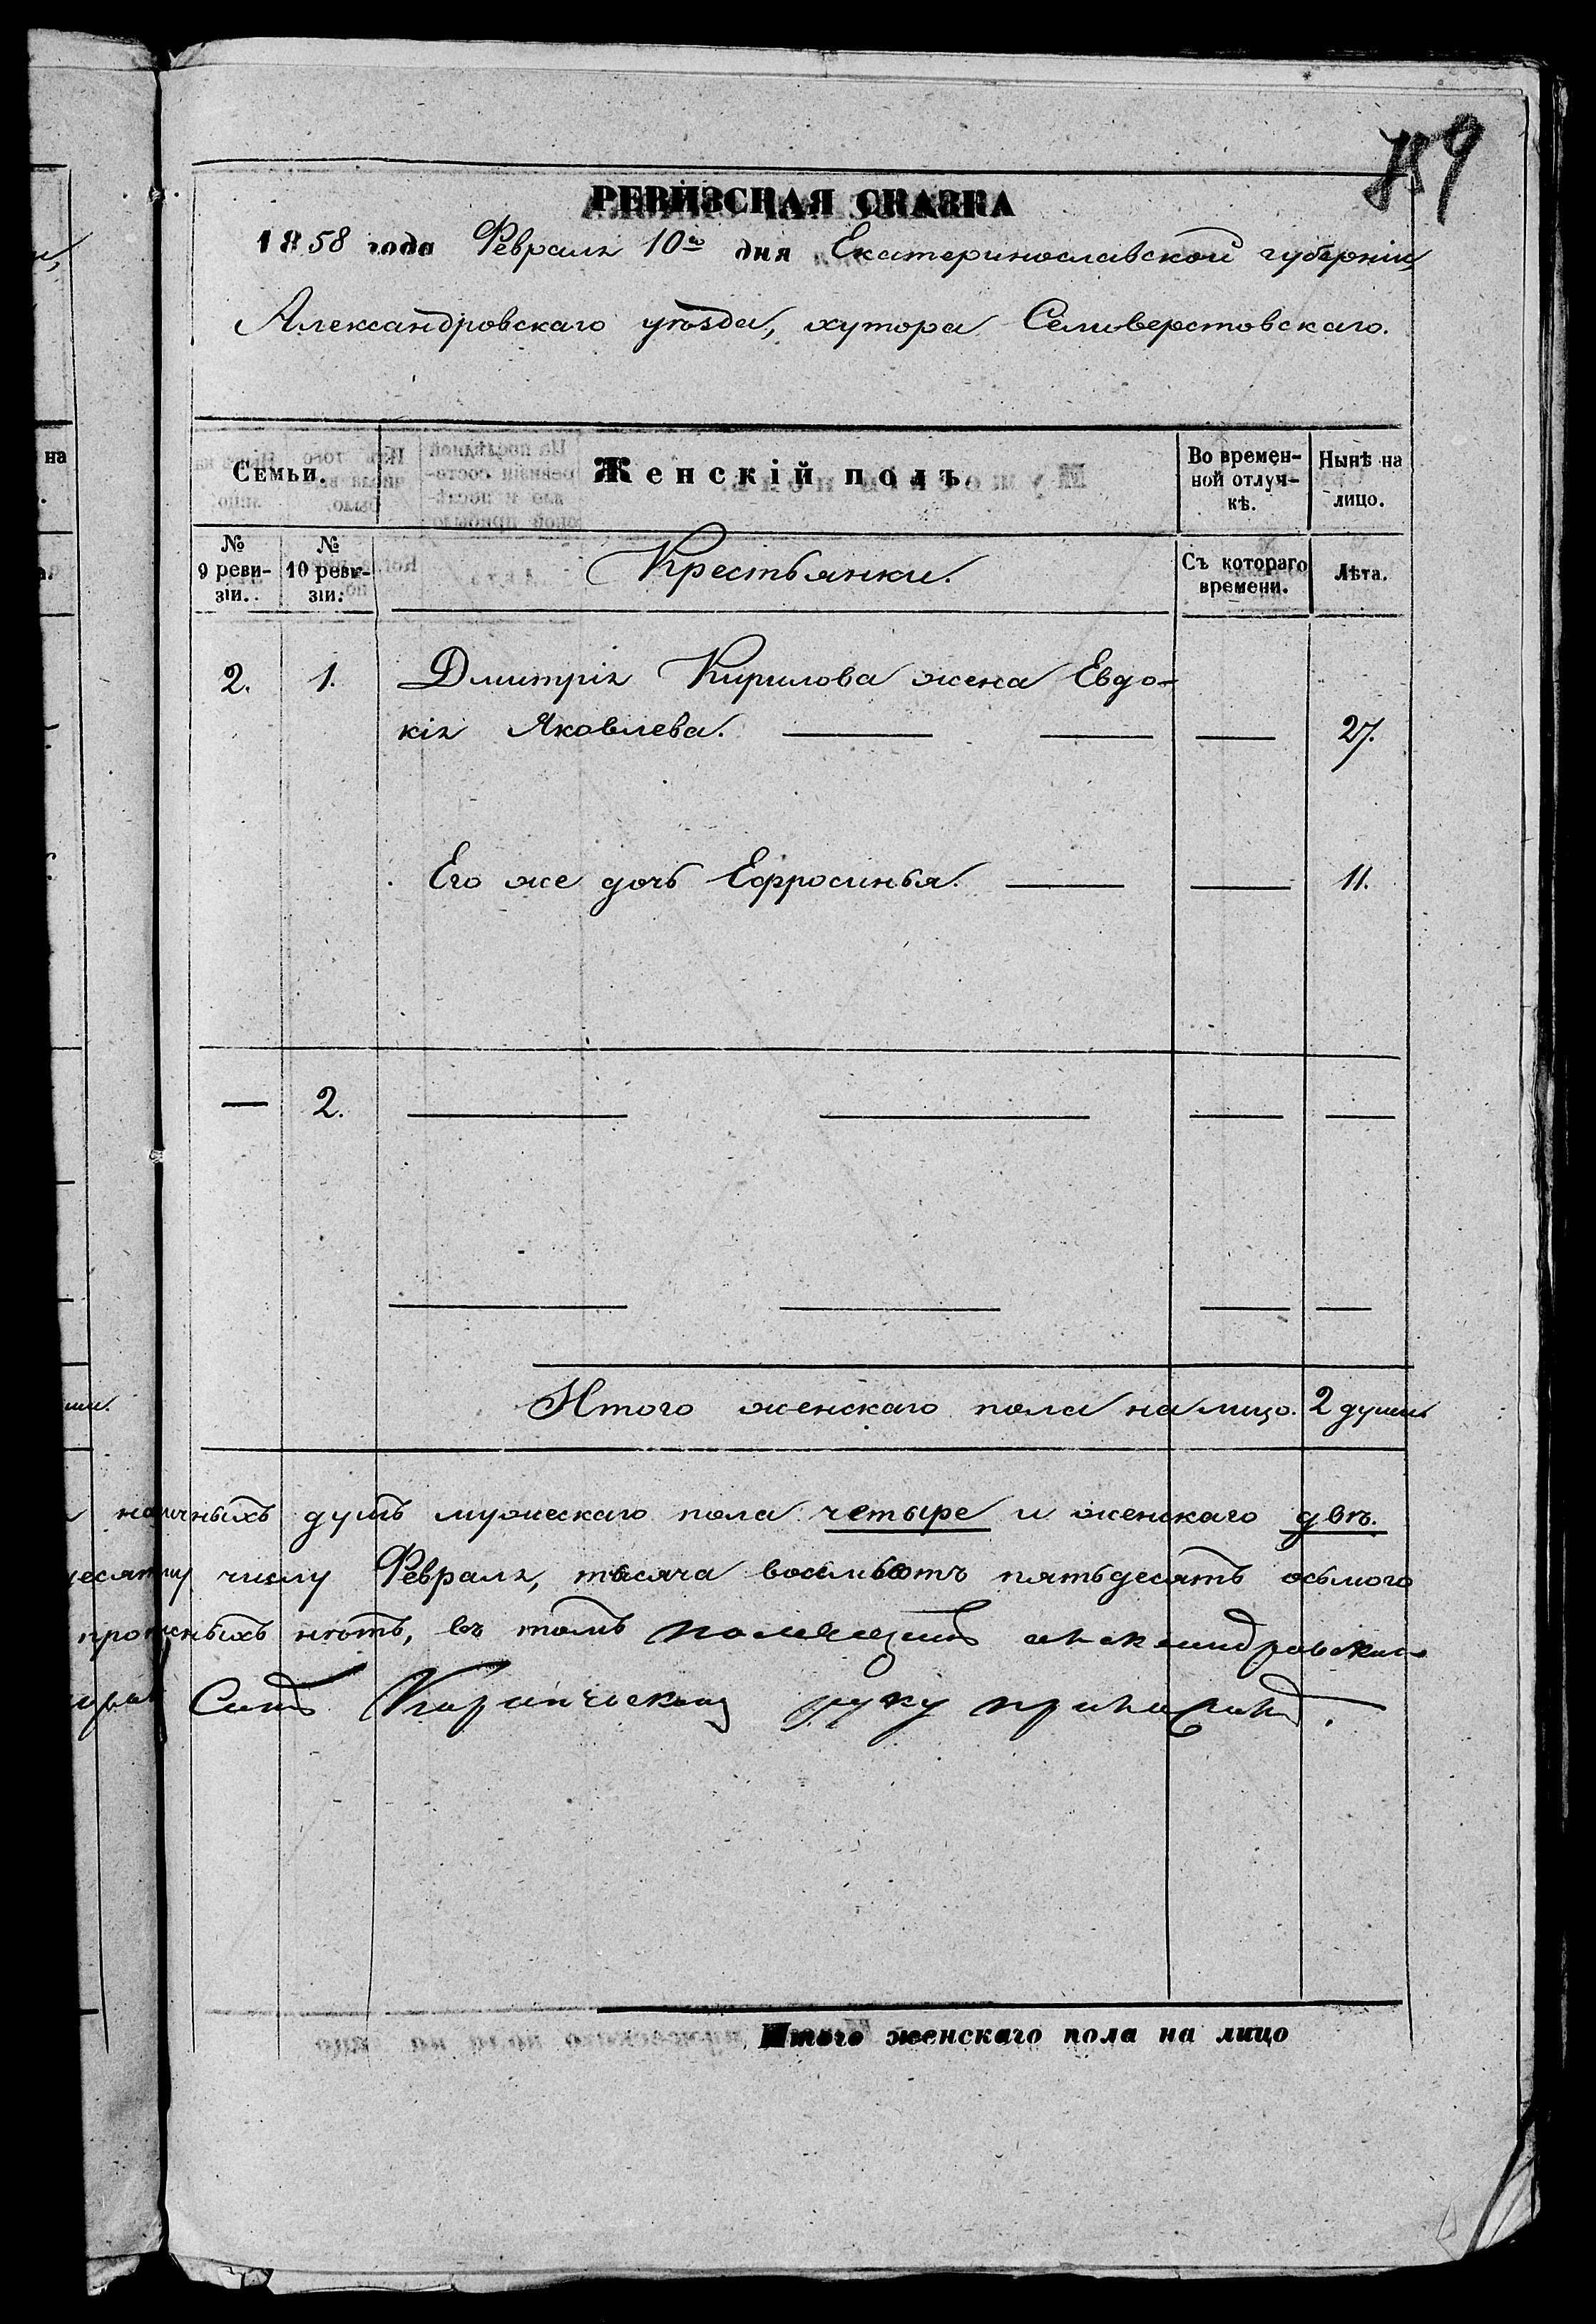 РЕВИЗСКАЯ СКАЗКА
1858 года Февраля 10го дня Екатеринославской губерніи,
Александровскаго уѣзда, хутора Селиверстовскаго.
Семьи.
Женскій полъ.
Во времен-
ной отлуч-
кѣ.
Нынѣ на
лицо.
№
9 реви-
зіи.
№
10 реви-
зіи.
Крестьянки.
Съ котораго
времени.
Лѣта.
2. 1. Дмитрія Кирилова жена Евдо-
кія Яковлева. — — — 27.
Его же дочь Ефросинья. — — 11.
— 2. — — — —
— — — —
Итого женскаго пола на лицо. 2 души
наличныхъ душъ мужескаго пола четыре и женскаго двѣ.
числу Февраля, тысяча восемьсотъ пятьдесятъ осьмого
нѣтъ, въ томъ
руку приложилъ.
Итого женскаго пола на лицо